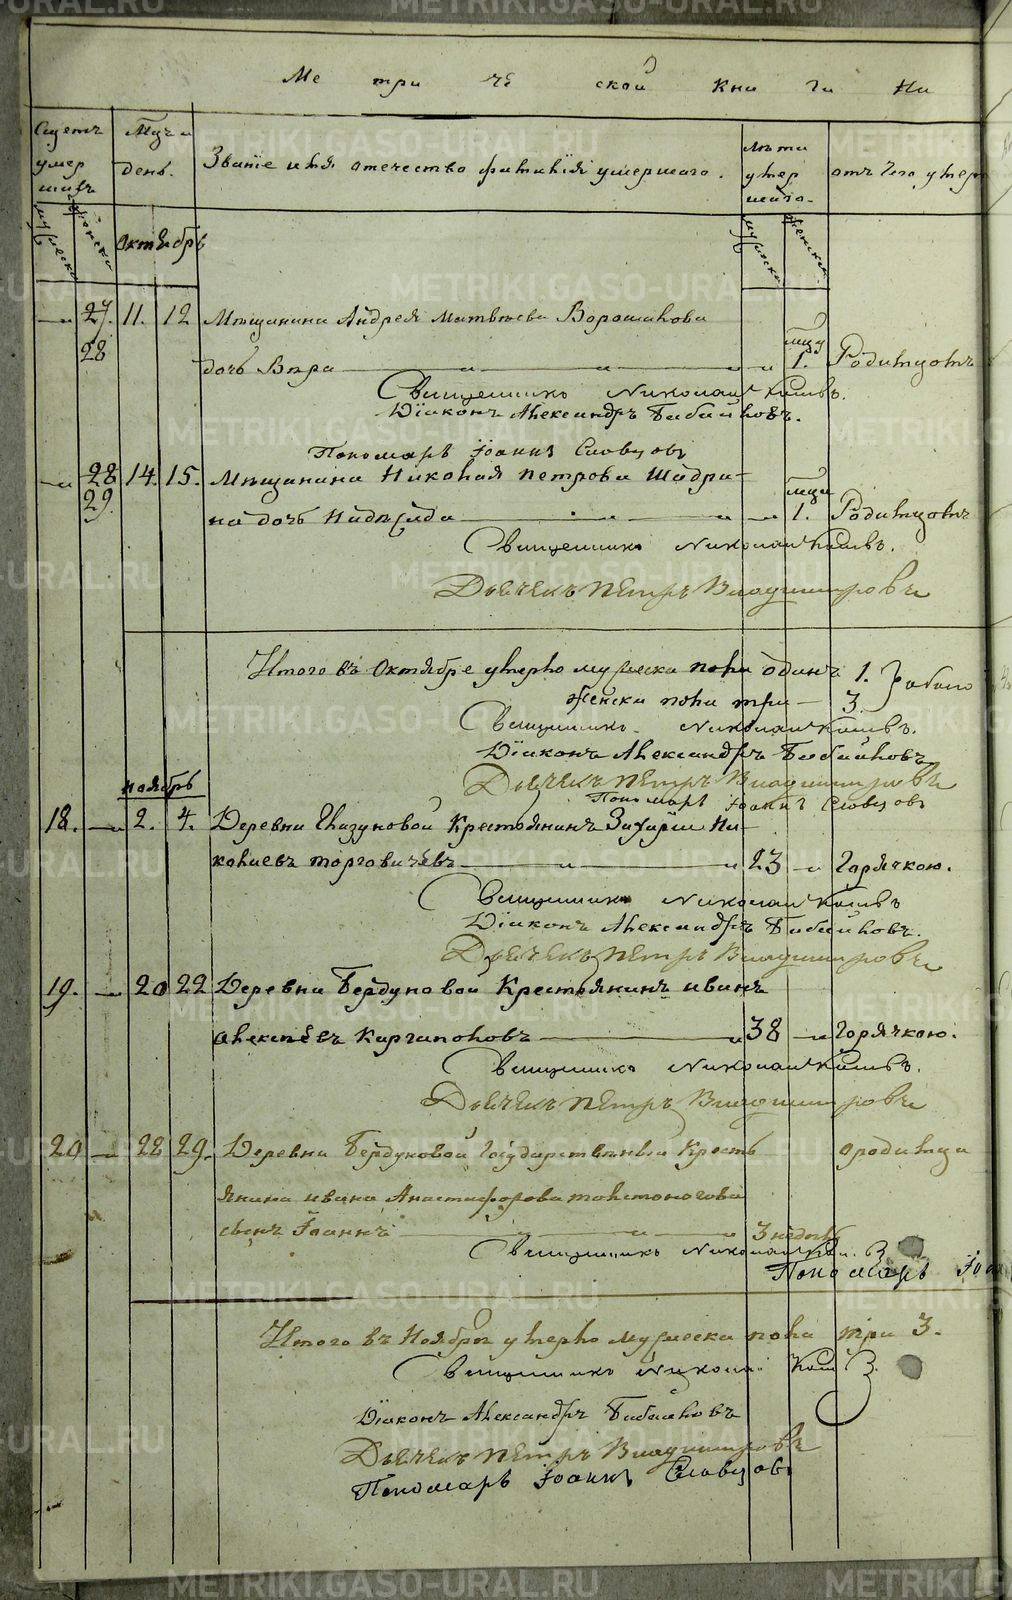 Ме три че ской Кни ги На
Счетъ умер шихъ
Мѣц. и день.
Званіе имя отечество фамилія умершаго.
Лѣта умер шаго.
отъ чего умер
мужеска
женска
Октябрь
мужеска
женска
27. 11. 12 Мѣщанина Андрея Матвѣева Ворошилова
28 дочь Вѣра 1. Родимцомъ
Священникъ Николай
Діаконъ Александръ Бибайковъ.
Пономарь Іоаннъ Словцовъ
28 14. 15. Мѣщанина Николая Петрова Шадри-
29. на дочь Надежда 1. Родимцомъ
Священникъ Николай
Дьячекъ Петръ Владимировъ
Итого въ Октябрѣ умерло мужеска пола одинъ 1. обоего
женска пола три 3.
Священникъ Николай
Діаконъ Александръ Бибайковъ
Дьячекъ Петръ Владимировъ
Пономарь Іоаннъ Словцовъ
Ноябрь
18. 2. 4. Деревни Глазуновой Крестьянинъ Захарій Ни-
колаевъ Торговичевъ 23 Горячкою.
Священникъ Николай
Діаконъ Александръ Бибайковъ.
Дьячекъ Петръ Владимировъ
19. 20 22 Деревни Бердуновой Крестьянинъ Иванъ
Алексѣевъ Каргаполовъ 38 Горячкою.
Священникъ Николай
Дьячекъ Петръ Владимировъ
20 28 29. Деревни Бердуновой Государственнаго Кресть
янина Ивана Анастафорова Толстоногова
сынъ Іоаннъ 3 недѣль
Священникъ Николай
Пономарь Іоа
Итого въ Ноябрѣ умерло мужеска пола три 3.
Священникъ Николай
Діаконъ Александръ Бибайковъ
Дьячекъ Петръ Владимировъ
Пономарь Іоаннъ Словцовъ
METRIKI.GASO-URAL.RU